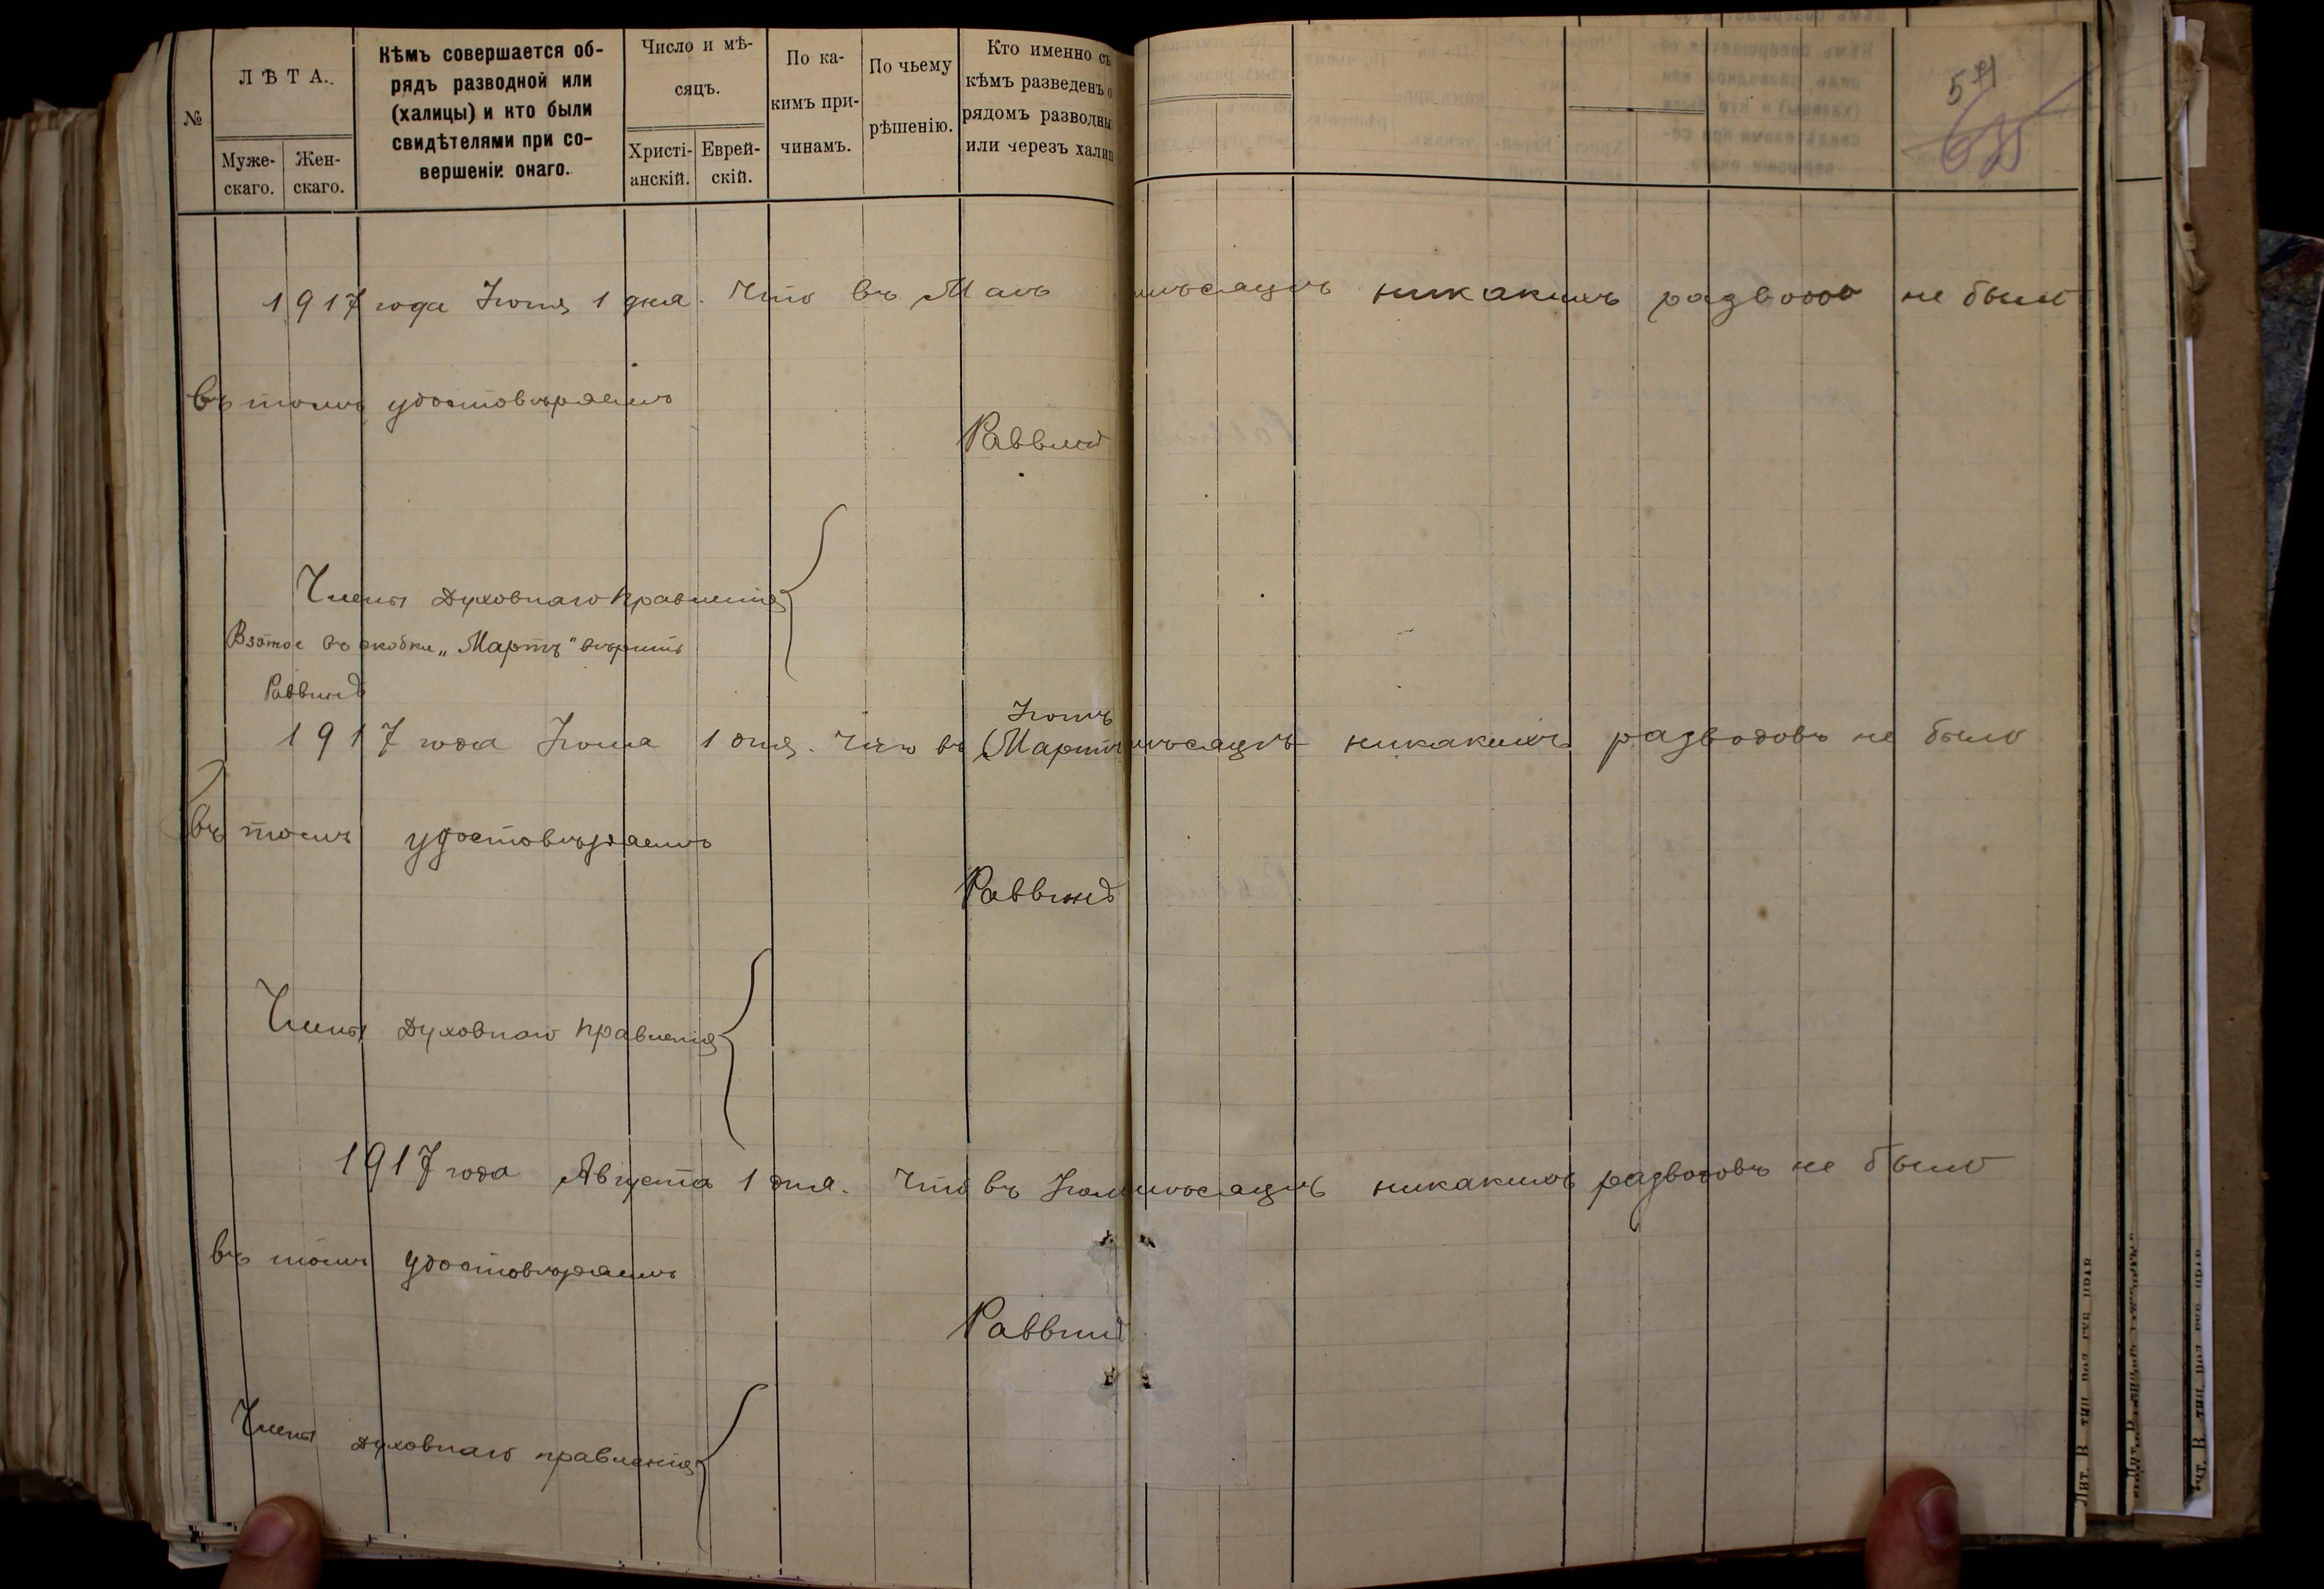 №
ЛѢТА.
Муже-
скаго.
Жен-
скаго.
Кѣмъ совершается об-
рядъ разводной или
(халицы) и кто были
свидѣтелями при со-
вершеніи онаго.
Число и мѣ-
сяцъ.
Христі-
анскій.
Еврей-
скій.
По ка-
кимъ при-
чинамъ.
По чьему
рѣшенію.
Кто именно съ
кѣмъ разведенъ о
рядомъ разводны
или черезъ халиц
571
1917 года Іюня 1 дня. Что въ Маѣ мѣсяцѣ никакихъ разводо не было
въ томъ удостовѣряемъ
Раввинъ
Члены Духовнаго правленія
Взятое въ скобки „Мартъ" вѣрить
Раввинъ
Іюнѣ
1917 года Іюля 1 дня. Что въ (Мартѣ мѣсяцѣ никакихъ разводовъ не было
въ томъ удостовѣряемъ
Раввинъ
Члены Духовнаго правленія
1917 года Августа 1 дня. Что въ Іюлѣ мѣсяцѣ никакихъ разводовъ не было
въ томъ удостовѣряемъ
Раввинъ
Члены духовнаго правленія